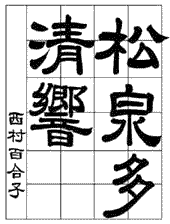 松泉多
清響
西村百合子